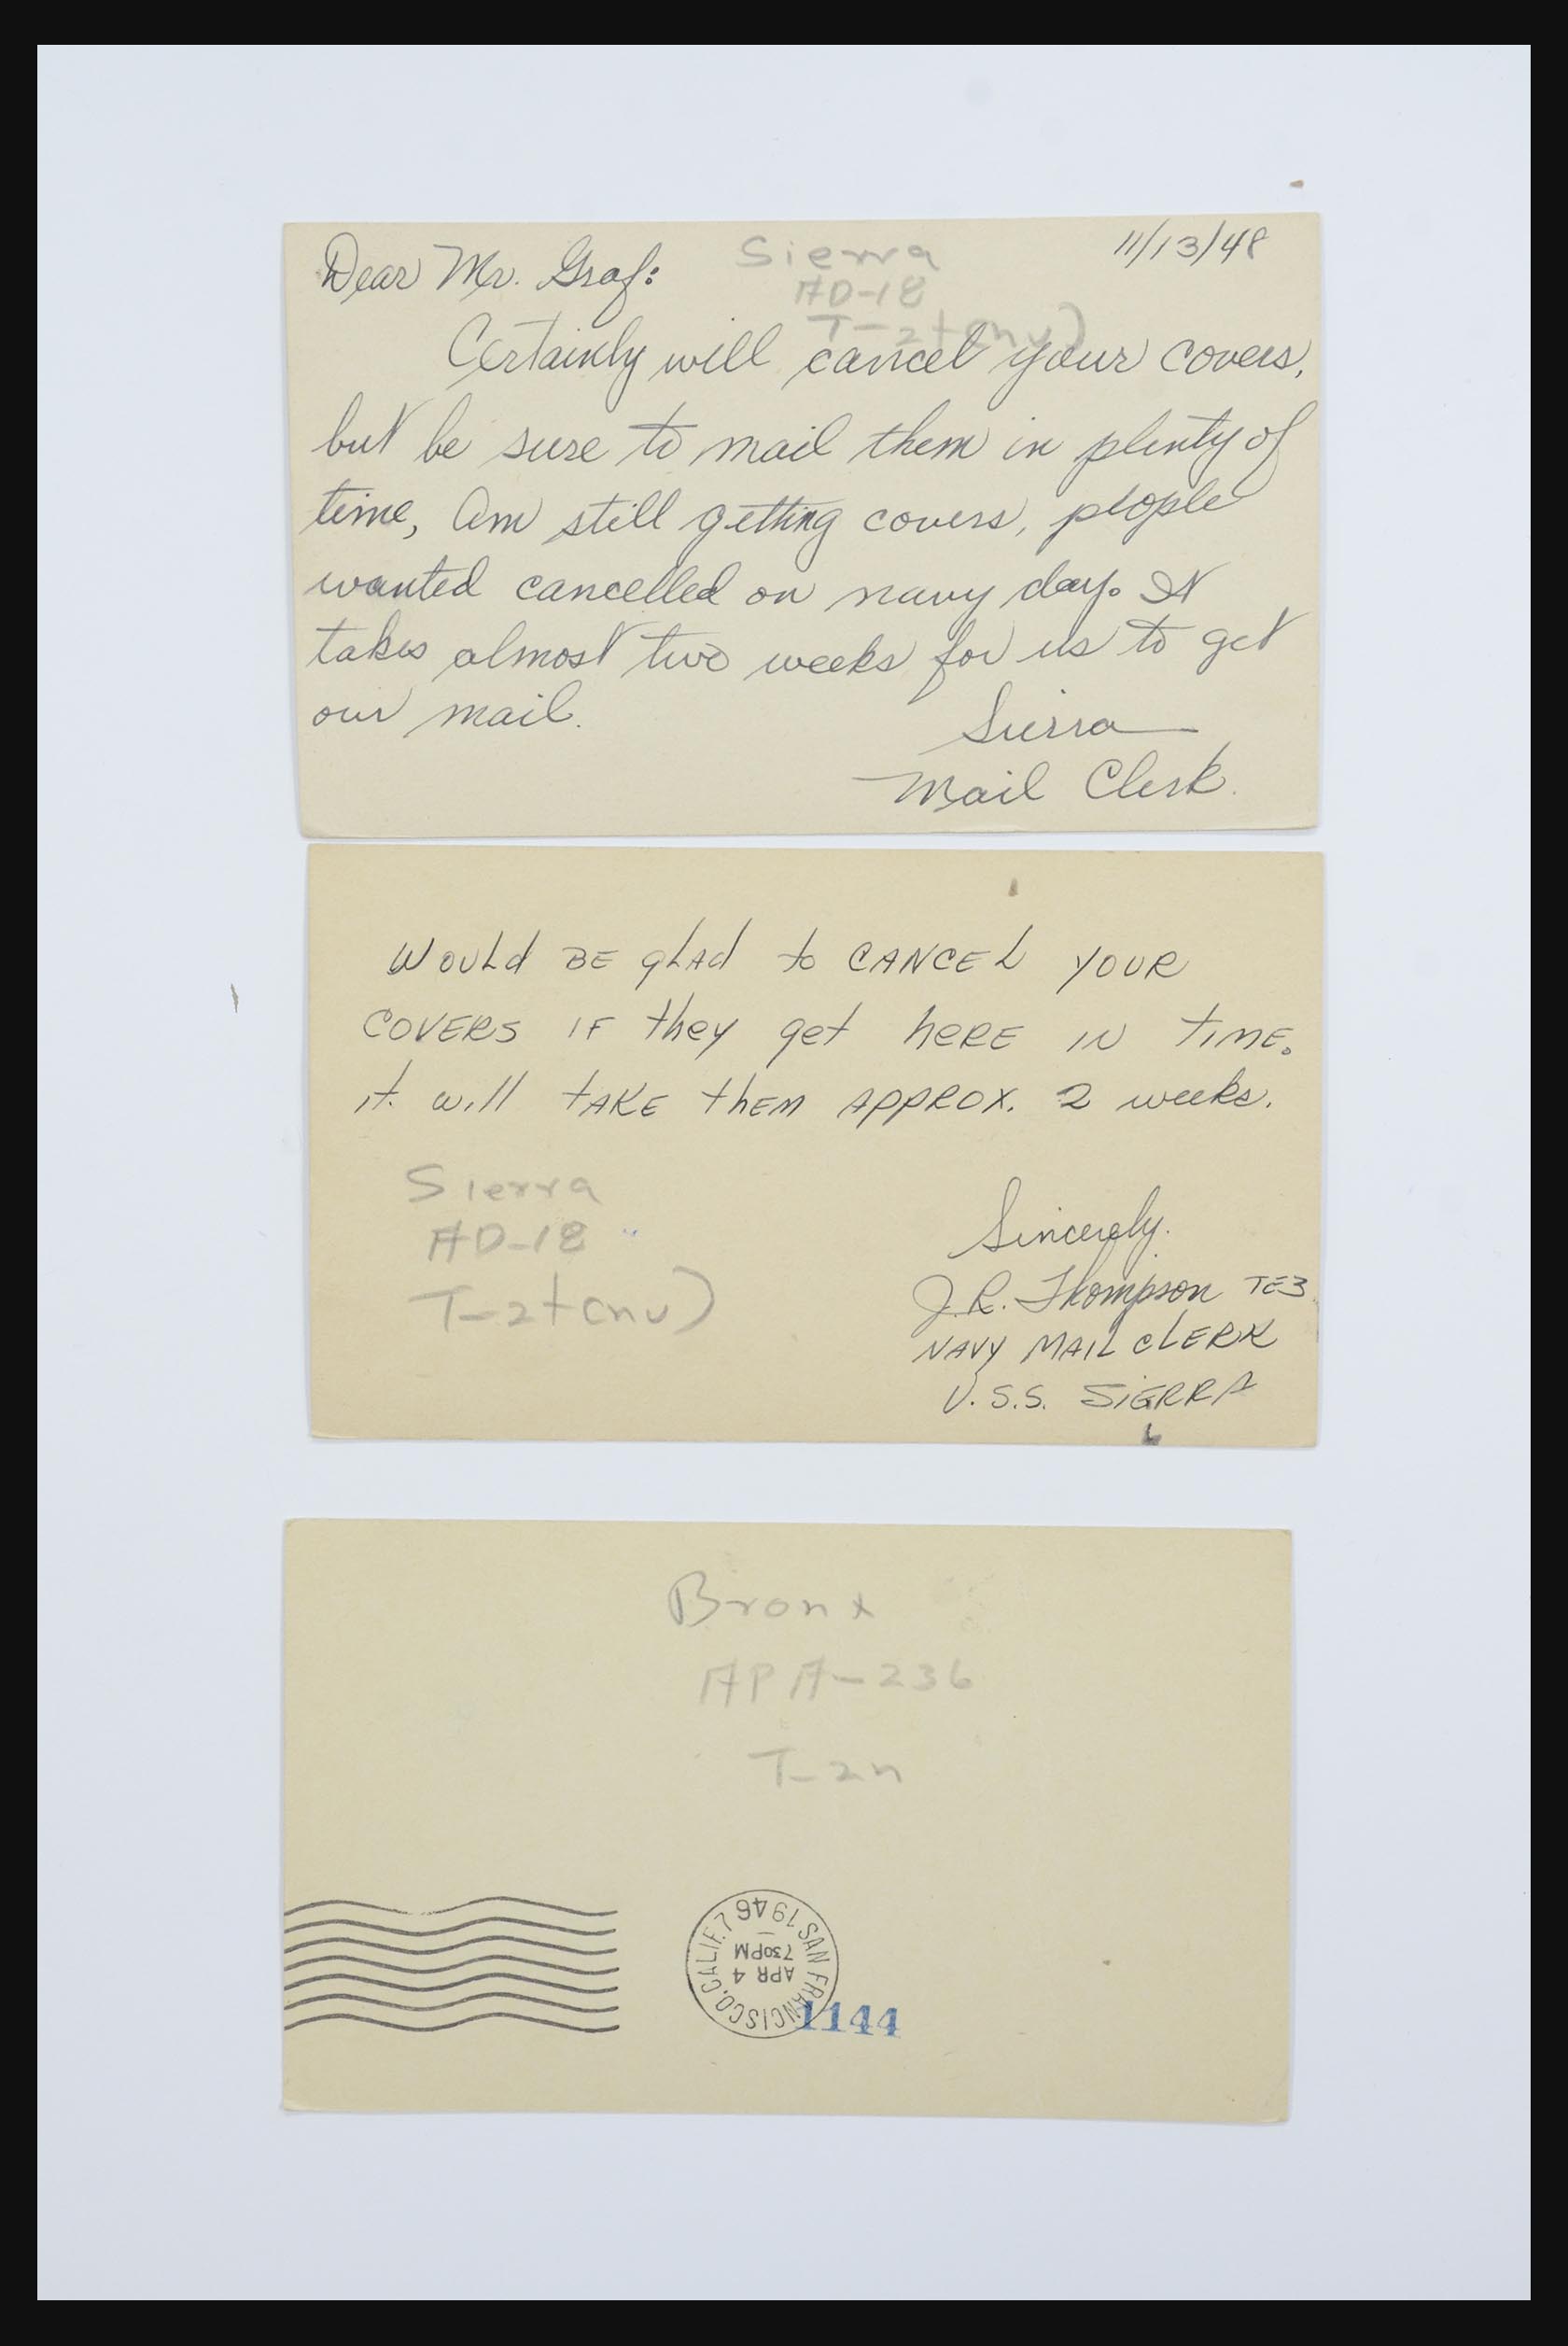 Dear Mr. Graf:
Sierra
AD-18
T-2t(nu)
11/13/48
Certainly will cancel your covers,
but be sure to mail them in plenty of
time, Am still getting covers, people
wanted cancelled on navy day. It
takes almost two weeks for us to get
our mail.
Sierra
Mail Clerk.
WOULd BE glAd to CANCEL YOUR
COVERS IF they get heRE IN TIME.
it will tAKE thEM APPROX. 2 weeks.
Sierra
AD-18
T-2t(nu)
Sincerely.
J.R. Thompson TE3
NAVY MAIL CLERK
U.S.S. SiERRA
Bronx
APA-236
T-2n
SAN FRANCISCO, CALIF. 7
APR 4
730PM
1946
1144